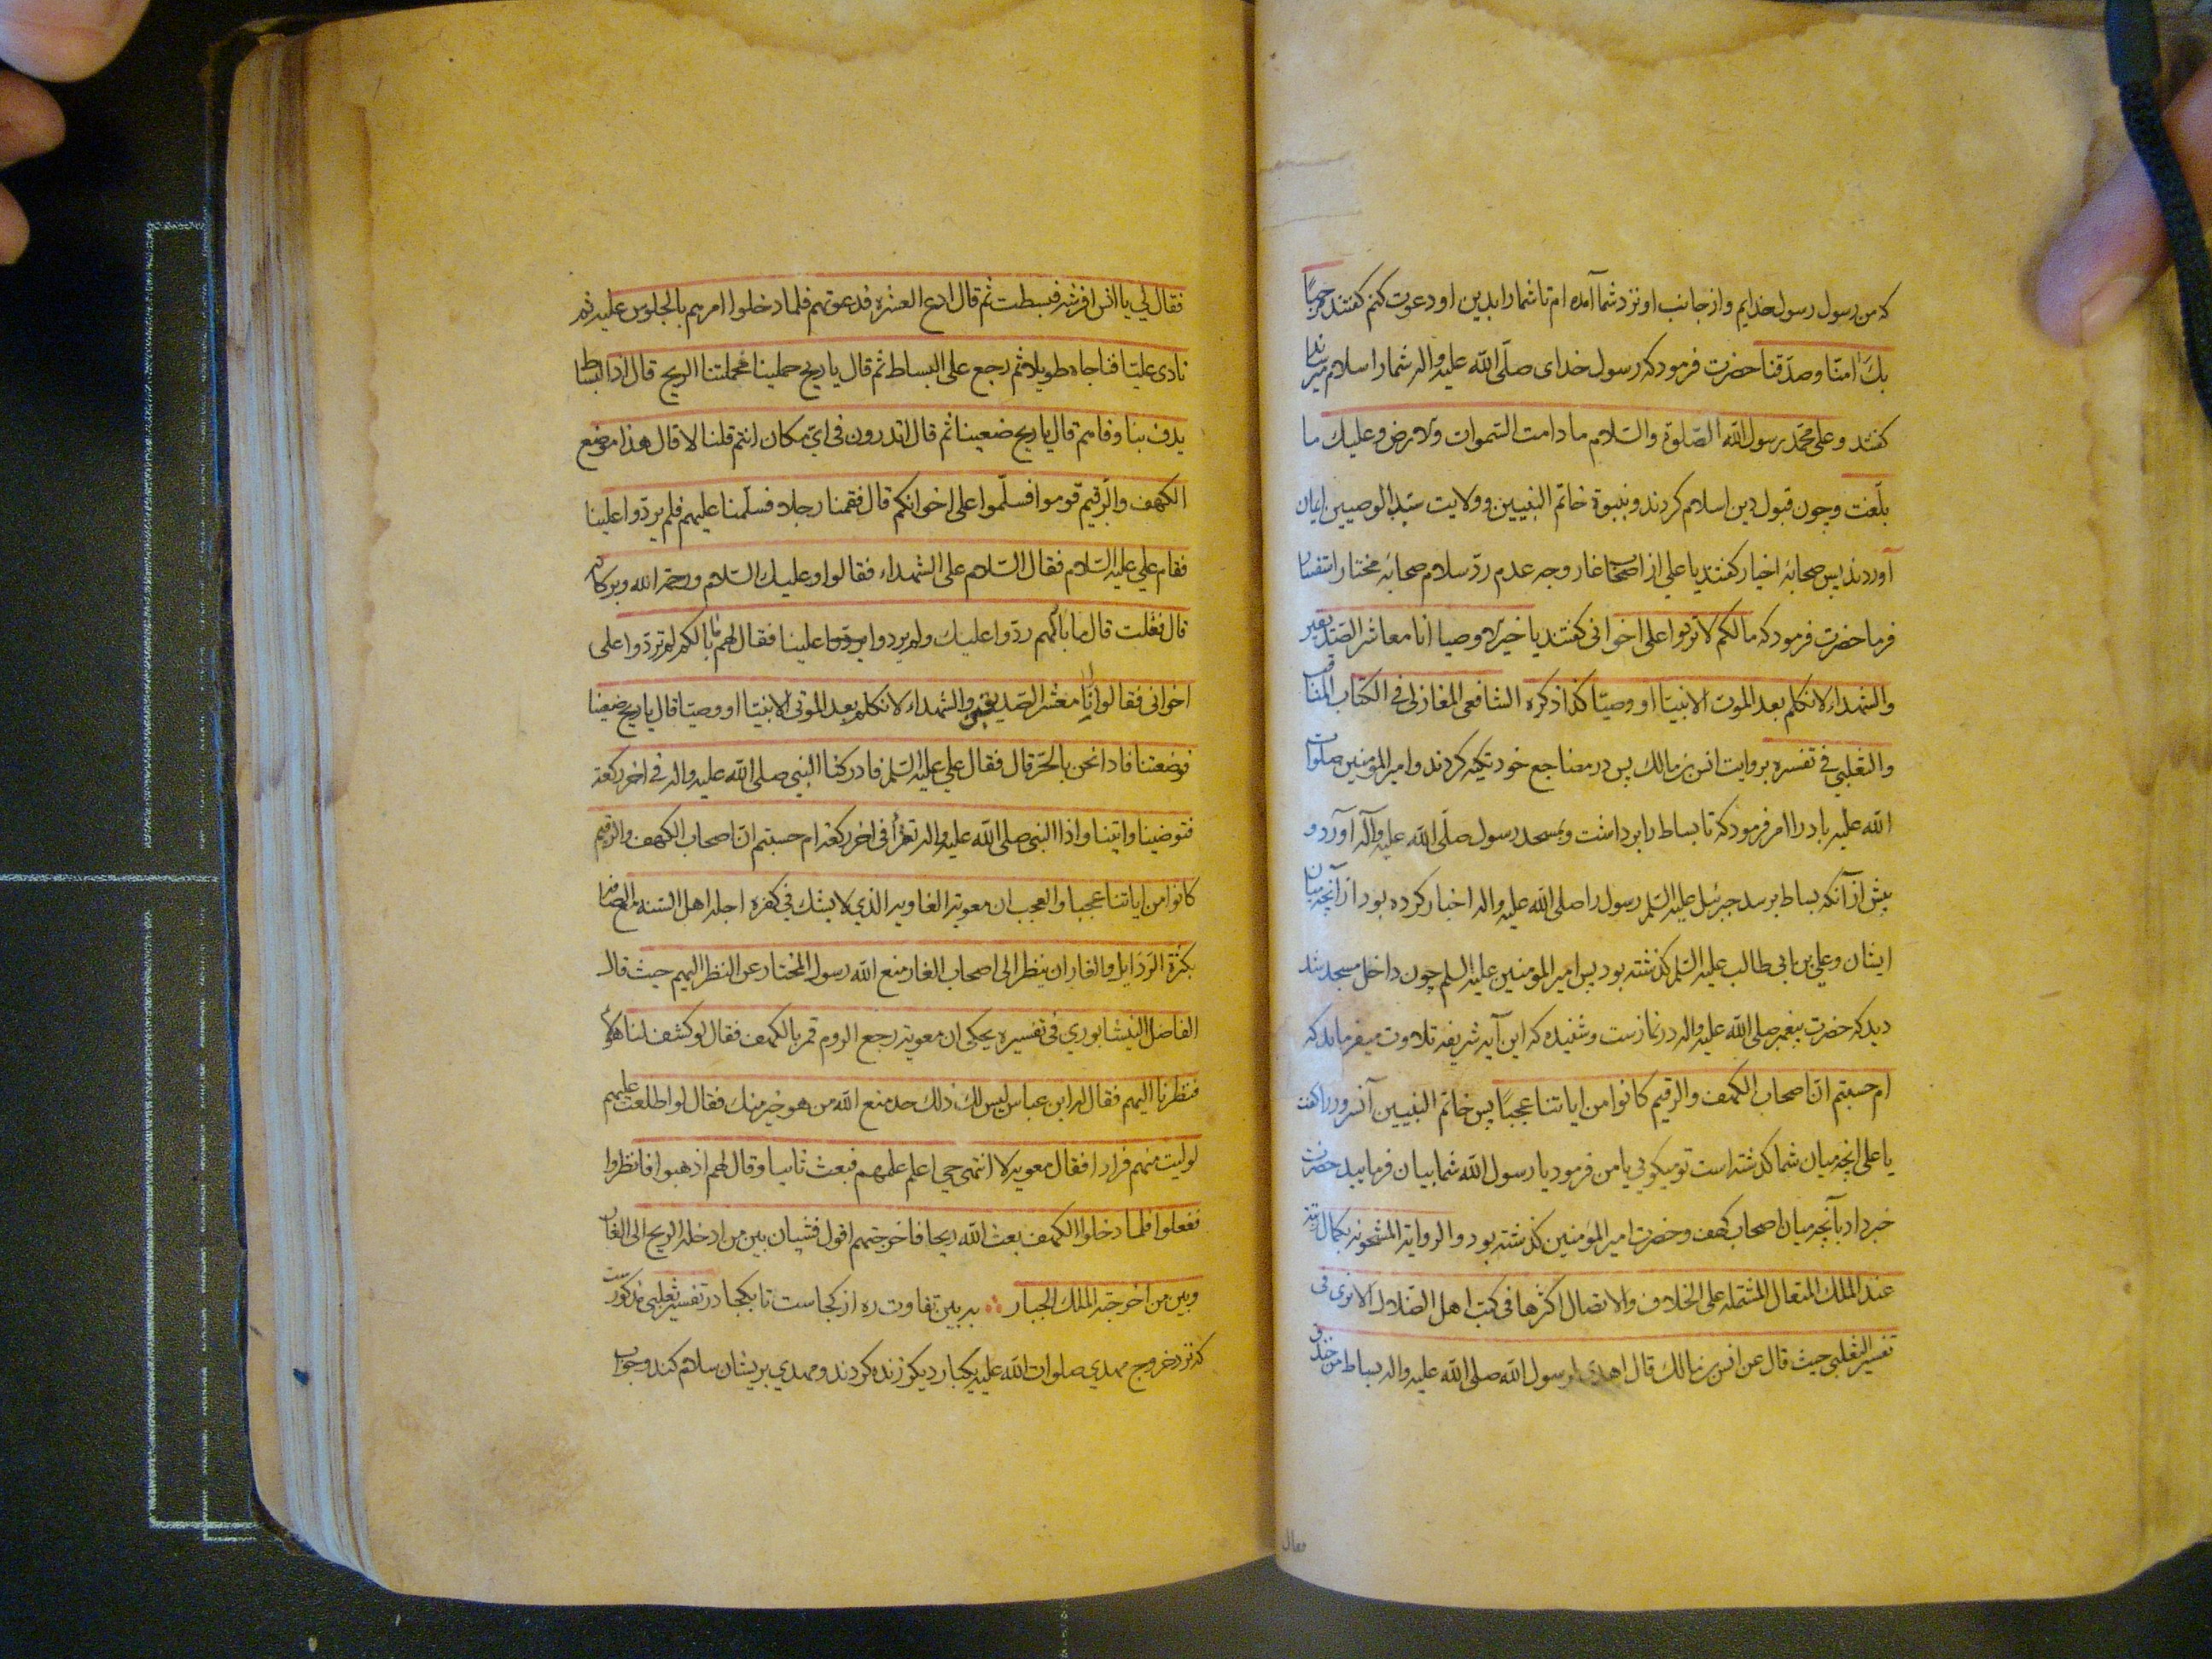 که من رسول رسول خدایم واز جانب او نزد شما آمده ام تا شما را بدین او دعوت کنم کفتند مرحبًا
بك امنّا وصدّقنا حضرت فرمود که رسول خدای صلّی اللّه علیه واله شما را سلام میرساند
کفتند وعلی محمّد رسول اللّه الصّلوة والسّلام ما دامت السّموات والارض وعلیك ما
بلّغت وچون قبول دین اسلام کردند وبنبوة خاتم النبیین وولایت سیّد الوصیین ایمان
آوردند پس صحابهٔ اخیار کفتند یا علی از اصحاب غار وجه عدم ردّ سلام صحابهٔ مختار استفسار
فرما حضرت فرمود که مالکم لا تردّوا علی اخوانی کفتند یا خیر الاوصیا انا معاشر الصّدیقین
والشهداء لا نکلم بعد الموت الا نبیّا او وصیّا کذا ذکره الشافعی المغازلی فی الکتاب المناقب
والثعلبی فی تفسره بروایت انس بن مالك پس در مضاجع خود تکیه کردند وامیرالمؤمنین صلوات
اللّه علیه باد را امر فرمود که تا بساط را برداشت وبمسجد رسول صلّی اللّه علیه وآله آورد و
پیش از آنکه بساط برسد جبرئیل علیه السّلم رسول را صلی اللّه علیه واله اخبار کرده بود از آنچه میان
ایشان وعلی بن ابی طالب علیه السّلم کذشته بود پس امیرالمومنین علیه السلم چون داخل مسجد شد
دید که حضرت پیغمبر صلی اللّه علیه واله در نمازست وشنیده که این آیه شریفه تلاوت میفرماید که
ام حسبتم انّ اصحاب الکهف والرقیم کانوا من ایاتنا عجبًا پس خاتم النبیین آنسرور را کفت
یا علی انچه میان شما کذشته است تو میکوئی یا من فرمود یا رسول اللّه شما بیان فرمایید حضرت
خبر داد بآنچه میان اصحاب کهف وحضرت امیرالمؤمنین کذشته بود والروایة المشحونه بکمال
عند الملك المتعال المشتمله علی الخلاف والاتصال اکثرها فی کتب اهل الضّلال الا تری فی
تفسیر الثعلبی حیث قال عن انس بن مالك قال اهدی لرسول اللّه صلی اللّه علیه واله بساط من خندق
فقال
فقال لی یا انس افرشه فبسطت ثم قال ادع العشره فدعوتهم فلما دخلوا امرهم بالجلوس علیه ثم
نادی علیّا فناجاه طویلا ثم رجع علی البساط ثم قال یا ریح حملینا فحملتنا الریح قال اذا البساط
یدف بنا وقا ثم قال یا ریح ضعینا ثم قال اتدرون فی ایّ مکان انتم قلنا لا قال هذا موضع
الکهف والرّقیم قوموا فسلّموا علی اخوانکم قال فقمنا رجلا فسلّمنا علیهم فلم یردّوا علینا
فقام علی علیه السّلام فقال السّلام علی الشهداء فقالوا وعلیك السّلام ورحمة الله وبرکاته
قال فقلت قال ما بالهم ردّوا علیك ولم یردوا علینا فقال لهم ما بالکم لم تردّوا علی
اخوانی فقالوا انّا معشر الصّدیقین والشهداء لا نکلم بعد الموتی الا نبیّا او وصیّا قال یا ریح ضعینا
فوضعتنا فاذا نحن بالحرّة قال فقال علی علیه السّلم فادرکنا النبی صلی اللّه علیه واله فی اخر رکعة
فتوضینا واتینا واذا النبی صلی اللّه علیه واله تقرأ فی اخر رکعة ام حسبتم انّ اصحاب الکهف والرقیم
کانوا من ایاتنا عجبا والعجب ان معویة الغاویه الذی لا یشك فی کفره اجلة اهل السّنه
بکثرة الرّذایل والغار ان ینظر الی اصحاب الغار منع اللّه رسوله المختار عن النظر الیهم حیث قال
الفاضل النیشابوری فی تفسیره یحکی ان معویة رجع الروم فمر بالکهف فقال لو کشف لنا هؤلاء
فنظرنا الیهم فقال له ابن عباس لیس لك ذلك حد منع اللّه من هو خیر منك فقال لو اطلعت علیهم
لولیت منهم فرارا فقال معویة لا انتهی حتی اعلم علمهم فبعث ناسا وقال لهم اذهبوا فانظروا
ففعلوا فلما دخلوا الکهف بعث اللّه ریحا فاخرجتهم اقول فشتان بین من ادخله الریح الی الغار
وبین من اخرجته الملك الجبار ببین تفاوت ره از کجاست تا بکجا در تفسیر ثعلبی مذکورست
که نزد خروج مهدی صلوات اللّه علیه یکبار دیکر زنده کردند ومهدی بریشان سلام کند وجواب